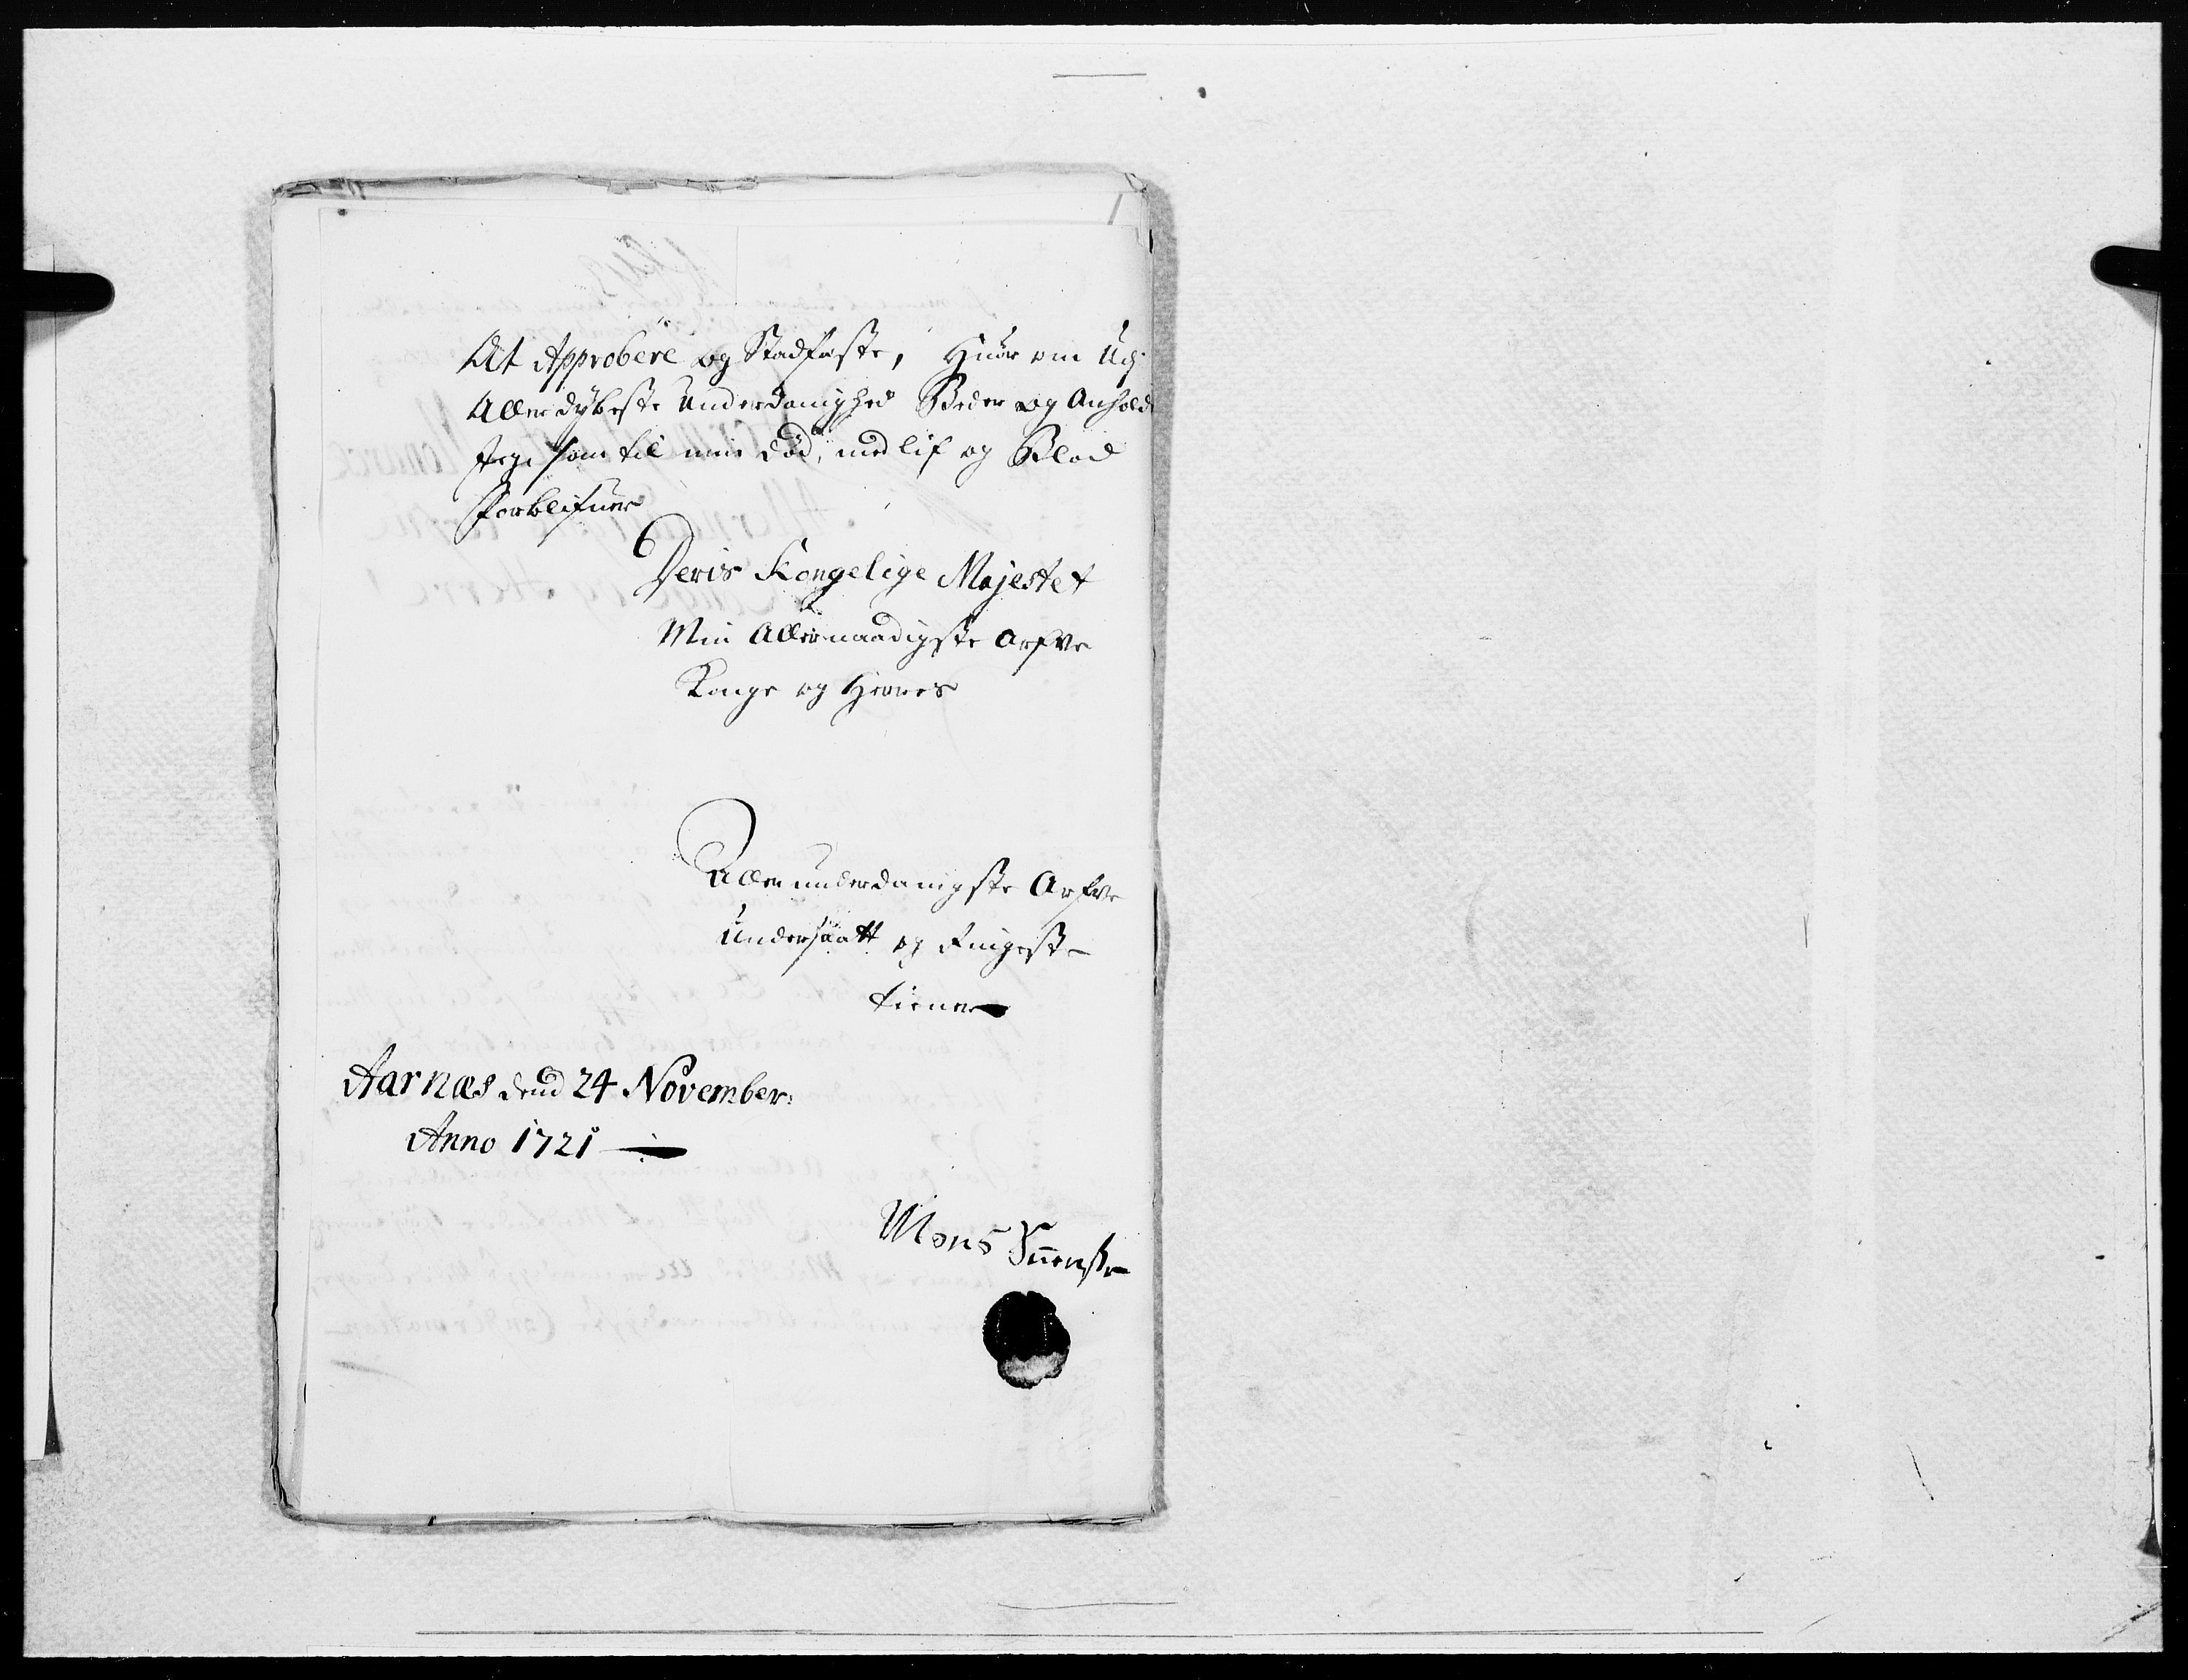 At Approbere og Stadfæste, Huor om Udj
Allerdybeste Underdanighed Beder og Anhold
Jeg som til min död, med lif og Blod
forblifuer
Deris Kongelige Majestet
Min Allernaadigste Arfve
Konge og Herres
Allerunderdanigste Arfve
Undersaatt og Ringeste
tiener
Aarnæs dend 24 November:
Anno 1721
Mons Suenske